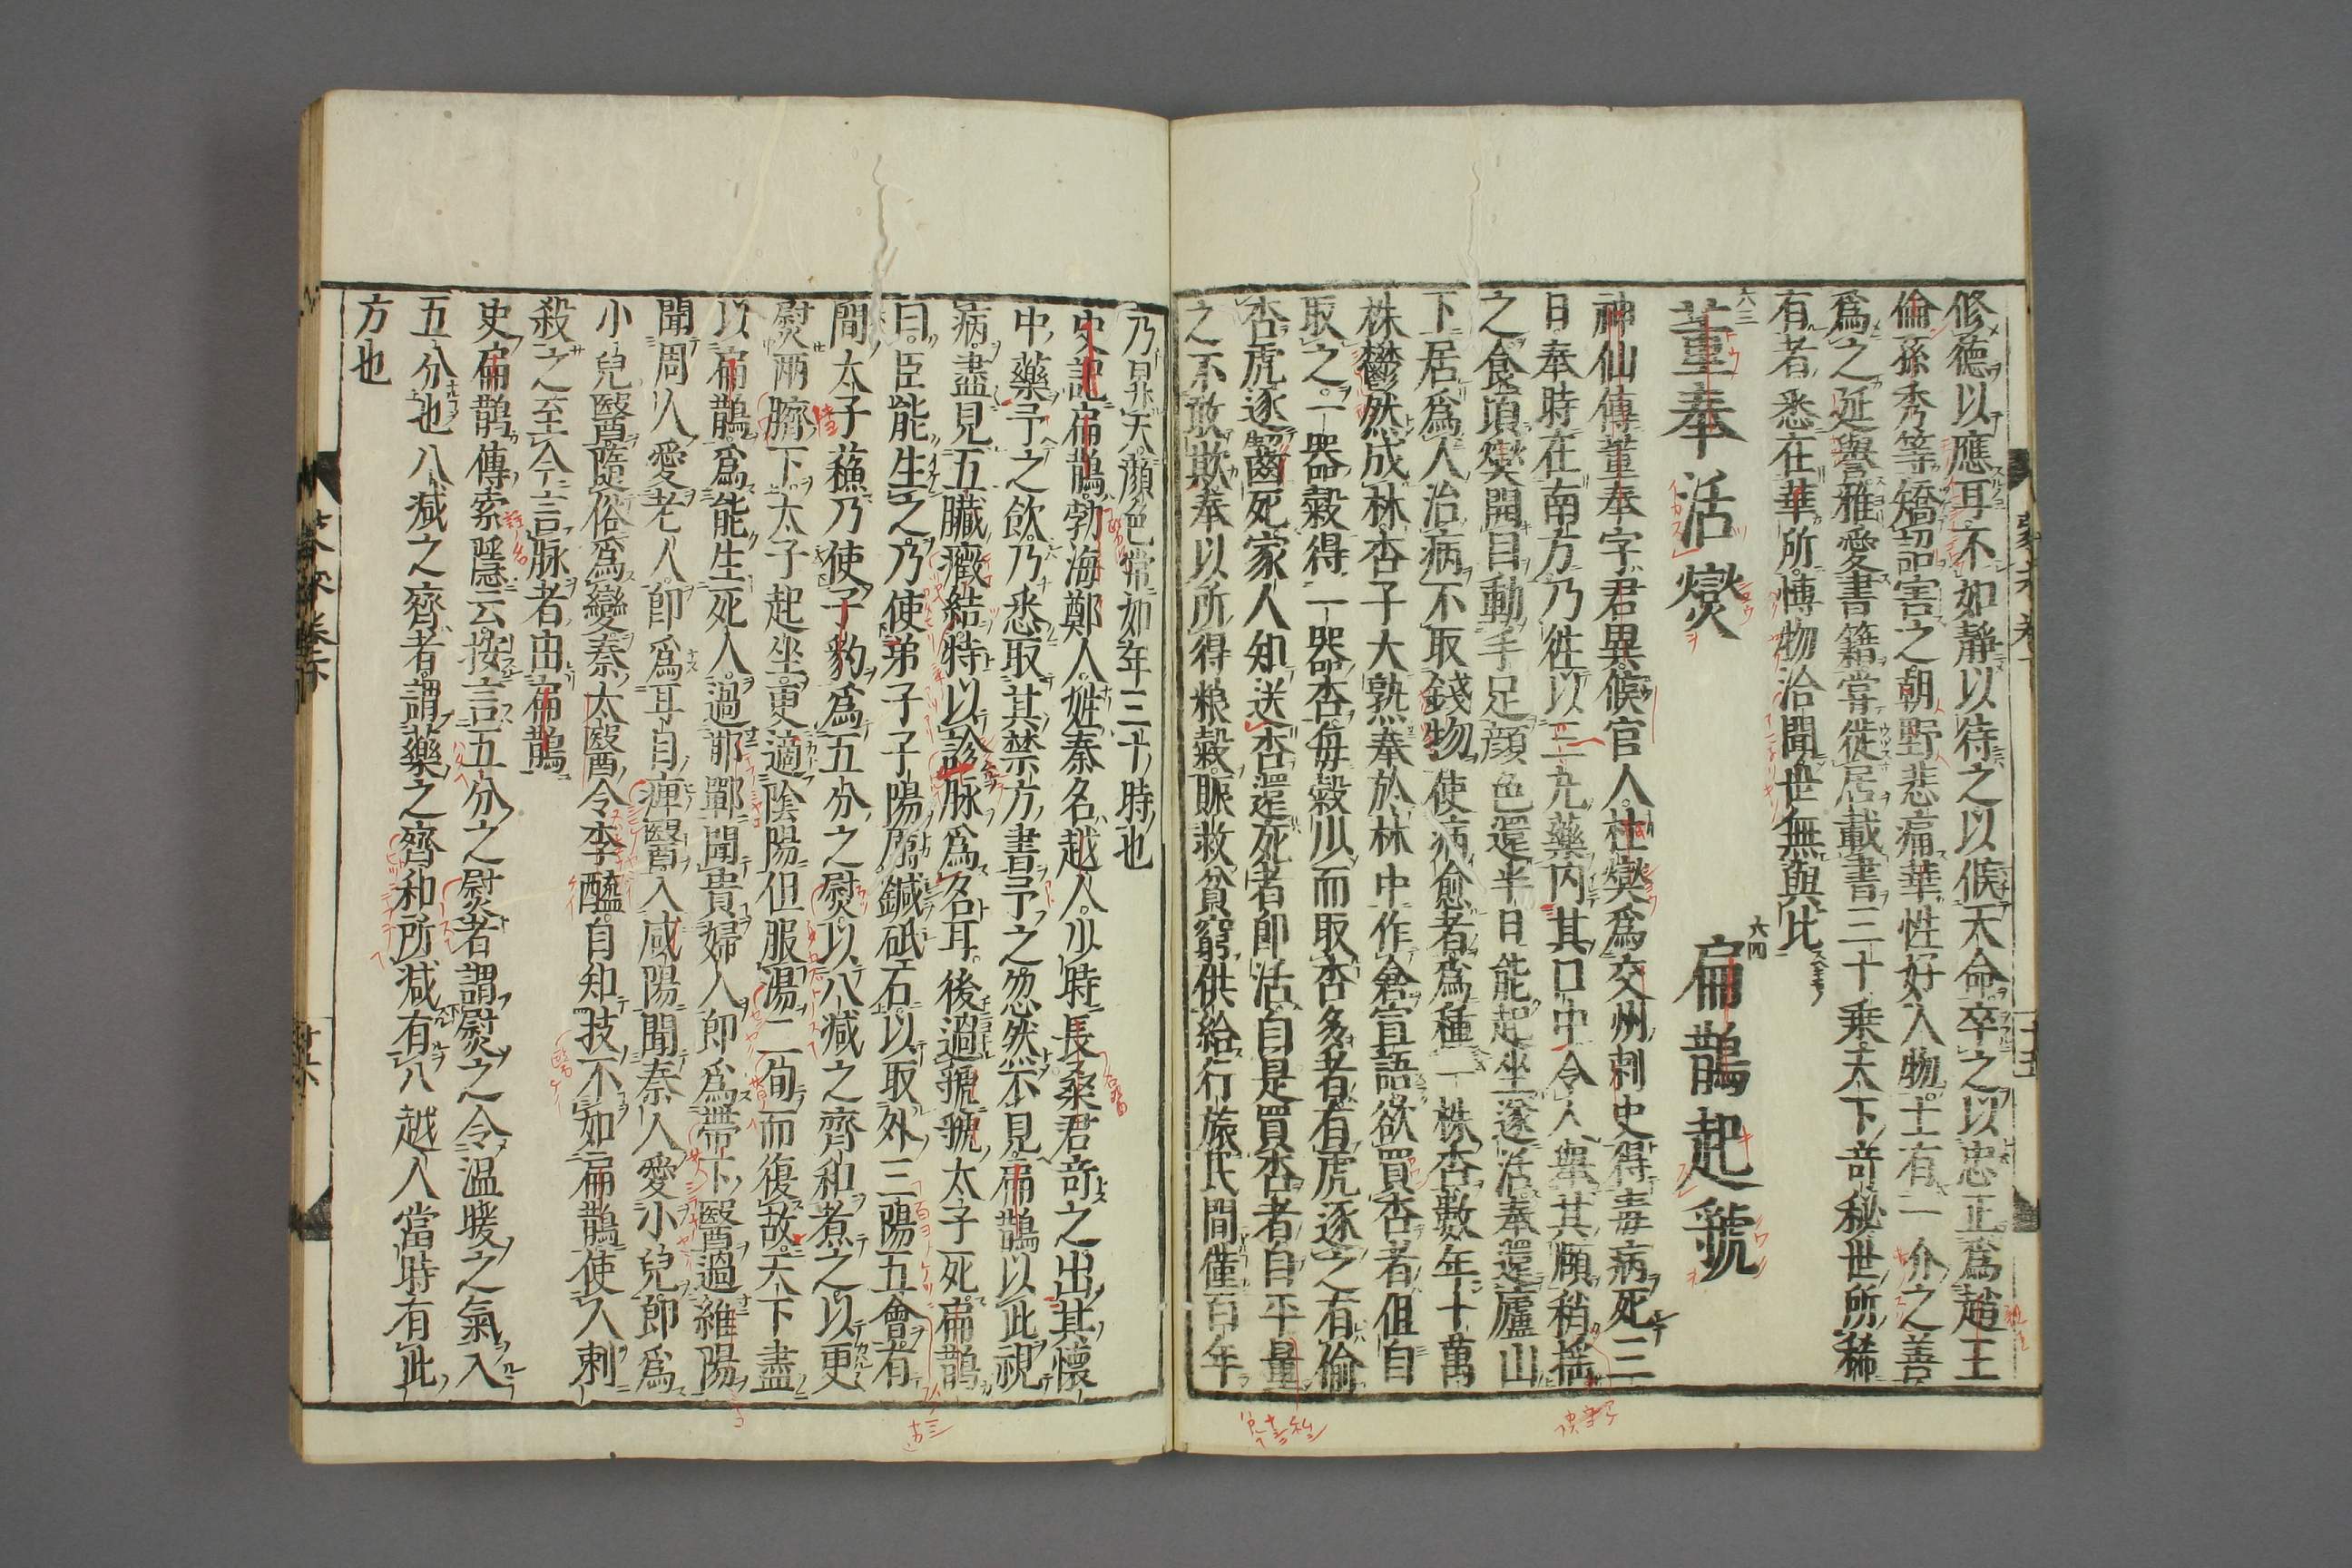 修德以應耳不如靜以待之以候天命卒之以忠正爲趙王
倫孫秀等矯詔害之朝野悲痛華性好人物士有一介之善
爲之延譽雅愛書籍嘗徙居載書三十乗天下竒秘世所稀
有者悉在華所博物洽聞世無與比
六三 董奉活燮 六四 扁鵲起虢
神仙傳董奉字君異候官人杜燮爲交州刺史得毒病死三
日奉時在南方乃徃以三丸藥内其口中令人舉其頤稍揺
之食頃燮開目動手足顔色還半日能起坐遂活奉還廬山
下居爲人治病不取錢物使病愈者爲種一株杏數年十萬
株鬱然成林杏子大熟奉於林中作倉宣語欲買杏者但自
取之一器穀得一器杏每穀少而取杏多者有虎逐之有偷
杏虎逐齧死家人知送杏還死者即活自是買杏者自平量
之不敢欺奉以所得粮穀賑救貧窮供給行旅民間僅百年
乃昇天顔色常如年三十時也
史記扁鵲勃海鄭人姓秦名越人少時長桑君竒之出其懷
中藥予之飲乃悉取其禁方書予之忽然不見扁鵲以此視
病盡見五臟癥結特以診脉爲名耳後過虢虢太子死扁鵲
曰臣能生之乃使弟子子陽厲鍼砥石以取外三陽五會有
間太子蘓乃使子豹爲五分之熨以八减之齊和煮之以更
熨兩脇下太子起坐更適陰陽但服湯二旬而復故天下盡
以扁鵲爲能生死人過邯鄲聞貴婦人即爲帶下醫過雒陽
聞周人愛老人即爲耳目痺醫入咸陽聞秦人愛小兒即爲
小兒醫隨俗爲變秦太醫令李醯自知技不如扁鵲使人刺
殺之至今言脉者由扁鵲
史扁鵲傳索隱云按言五分之熨者謂熨之令温暖之氣入
五分也八减之齊者謂藥之齊和所减有八越人當時有此
方也